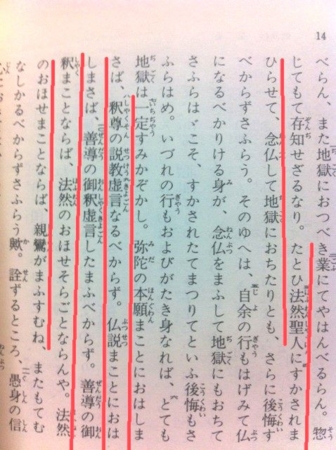 14
べらん、また地獄におつべき業にてやはんべるらん。惣
じてもて存知せざるなり。たとひ法然聖人にすかされま
ひらせて、念仏して地獄におちたりとも、さらに後悔す
べからずさふらう。そのゆへは、自余の行もはげみて仏
になるべかりける身が、念仏をまふして地獄にもおちて
さふらはゞこそ、すかされたてまつりてといふ後悔もさ
ふらはめ。いづれの行もおよびがたき身なれば、とても
地獄は一定すみかぞかし。弥陀の本願まことにおはしま
さば、釈尊の説教虚言なるべからず。仏説まことにおは
しまさば、善導の御釈虚言したまふべからず。善導の御
釈まことならば、法然のおほせそらごとならんや。法然
のおほせまことならば、親鸞がまふすむね、またもてむ
なしかるべからずさふらう歟。詮ずるところ、愚身の信